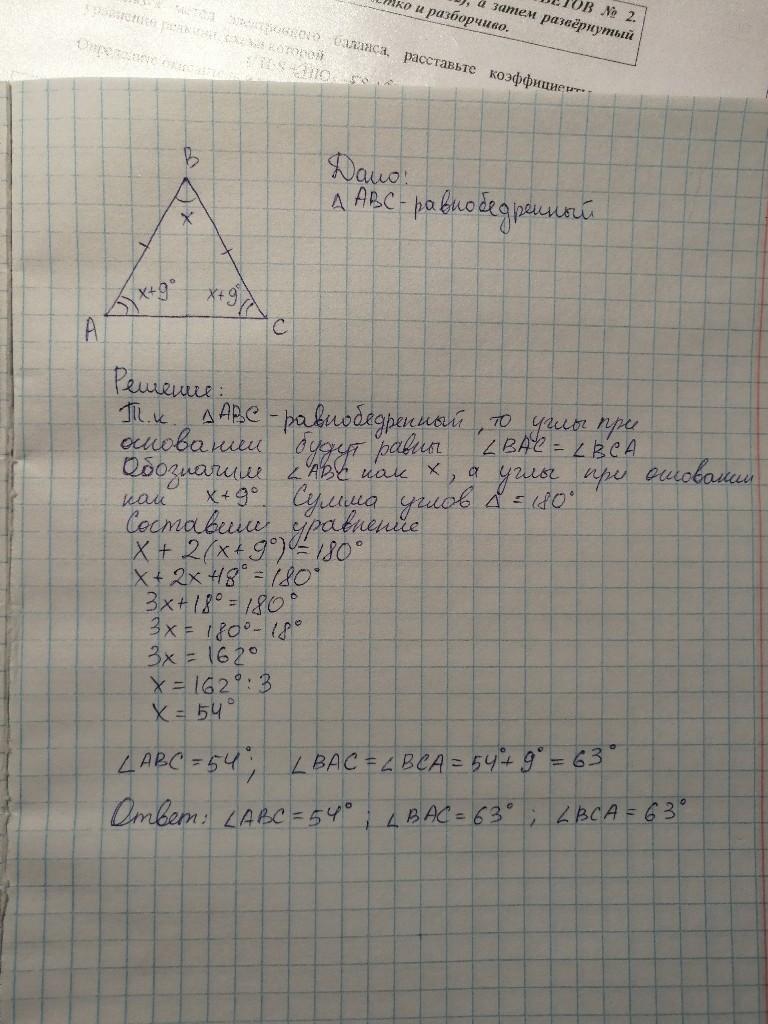 ВЕТОВ № 2.
), а затем развёрнутый
етко и разборчиво.
метод электронного баланса, расставьте коэффициенты
уравнении реакции, схема которой
Определите
B
x
x+9° x+9°
A C
Дано:
△ ABC - равнобедренный
Решение:
Т.к. △ABC - равнобедренный, то углы при
основании будут равны ∠BAC = ∠BCA
Обозначим ∠ABC как x, а углы при основании
как x+9°. Сумма углов △ = 180°
Составим уравнение
x + 2(x+9°) = 180°
x + 2x+18° = 180°
3x+18° = 180°
3x = 180° - 18°
3x = 162°
x = 162° : 3
x = 54°
∠ABC = 54°; ∠BAC = ∠BCA = 54°+ 9° = 63°
Ответ: ∠ABC = 54° ; ∠BAC = 63° ; ∠BCA = 63°